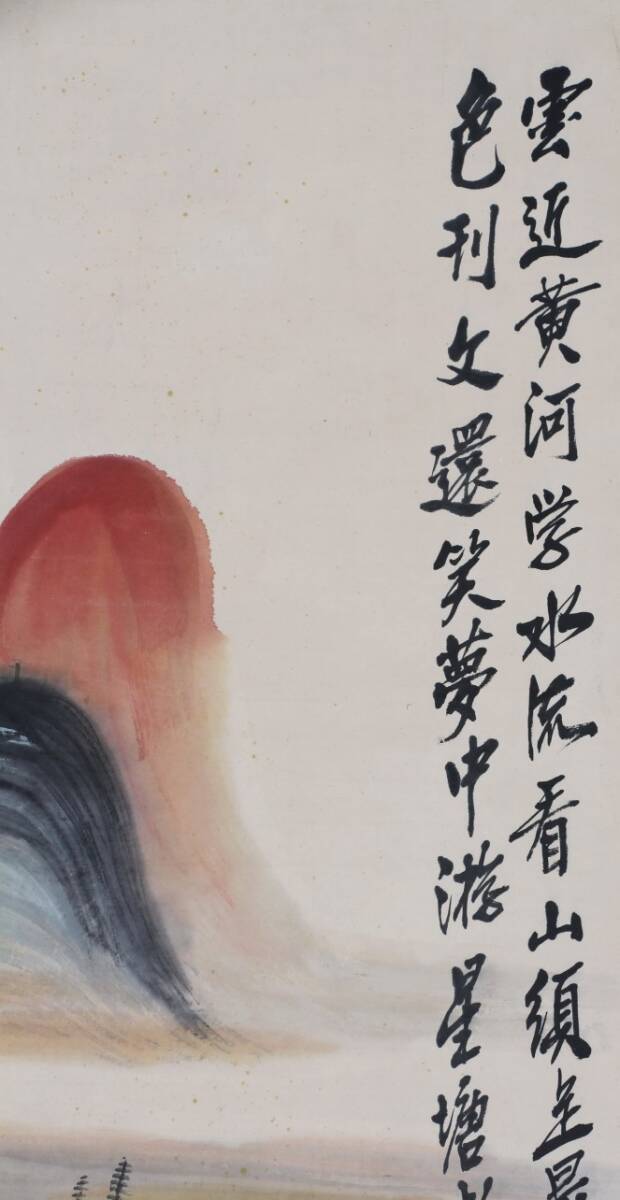 雲近黄河学水流看山須是
色刊文還笑夢中游星塘